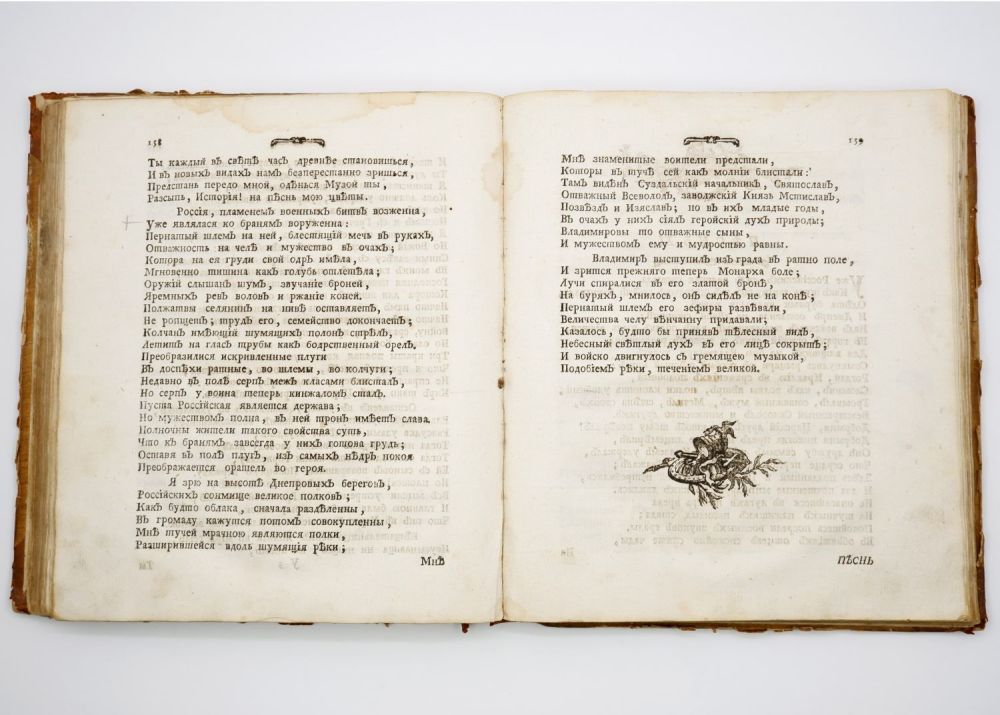 158
Ты каждый въ свѣтѣ часъ древнѣе становишься,
И въ новыхъ видахъ намъ безперестанно зришься,
Предстань передо мной, одѣнься Музой ты,
Разсыпь, Исторія! на пѣснь мою цвѣты.
Россія, пламенемъ военныхъ битвъ возженна,
Уже являлася ко бранямъ воруженна:
Пернатый шлемъ на ней, блестящій мечь въ рукахъ,
Отважность на челѣ и мужество въ очахъ;
Котора на ея груди свой одръ имѣла,
Мгновенно тишина какъ голубь отлетѣла;
Оружій слышанъ шумъ, звучаніе броней,
Яремныхъ ревъ воловъ и ржаніе коней.
Полжатвы селянинъ на нивѣ оставляетъ,
Не ропщетъ; трудъ его, семейство докончаетъ;
Колчанъ имѣющій шумящихъ полонъ стрѣлъ,
Летитъ на гласъ трубы какъ бодрственный орелъ.
Преобразилися искривленные плуги
Въ доспѣхи ратные, во шлемы, во колчуги;
Недавно въ полѣ серпъ межъ класами блисталъ,
Но серпъ у воина теперь кинжаломъ сталъ.
Пуста Россійская является держава;
Но мужествомъ полна, въ ней тронъ имѣетъ слава.
Полночны жители такого свойства суть,
Что къ бранямъ завсегда у нихъ готова грудь;
Оставя въ полѣ плугъ, изъ самыхъ нѣдръ покоя
Преображается оратель во героя.
Я зрю на высотѣ Днепровыхъ береговъ,
Россійскихъ сонмище великое полковъ;
Какъ будто облака, сначала раздѣленны,
Въ громаду кажутся потомъ совокупленны,
Мнѣ тучей мрачною являются полки,
Разширившейся вдоль шумящія рѣки;
Мнѣ
159
Мнѣ знаменитые воители предстали,
Которы въ тучѣ сей какъ молніи блистали:
Тамъ видѣнъ Суздальскій начальникъ, Святославъ,
Отважный Всеволодъ, заволжскій Князь Мстиславъ,
Позвѣздъ и Изяславъ; но въ ихъ младые годы,
Въ очахъ у нихъ сіялъ геройскій духъ природы;
Владимировы то отважные сыны,
И мужествомъ ему и мудростью равны.
Владимиръ выступилъ изъ града въ ратно поле,
И зрится прежняго теперь Монарха боле;
Лучи спиралися въ его златой бронѣ,
На буряхъ, мнилось, онъ сидѣлъ не на конѣ;
Пернатый шлемъ его зефиры развѣвали,
Величества челу вѣнчанну придавали;
Казалось, будто бы принявъ тѣлесный видъ,
Небесный свѣтлый духъ въ его лицѣ сокрытъ;
И войско двигнулось съ гремящею музыкой,
Подобіемъ рѣки, теченіемъ великой.
ПѢСНЬ